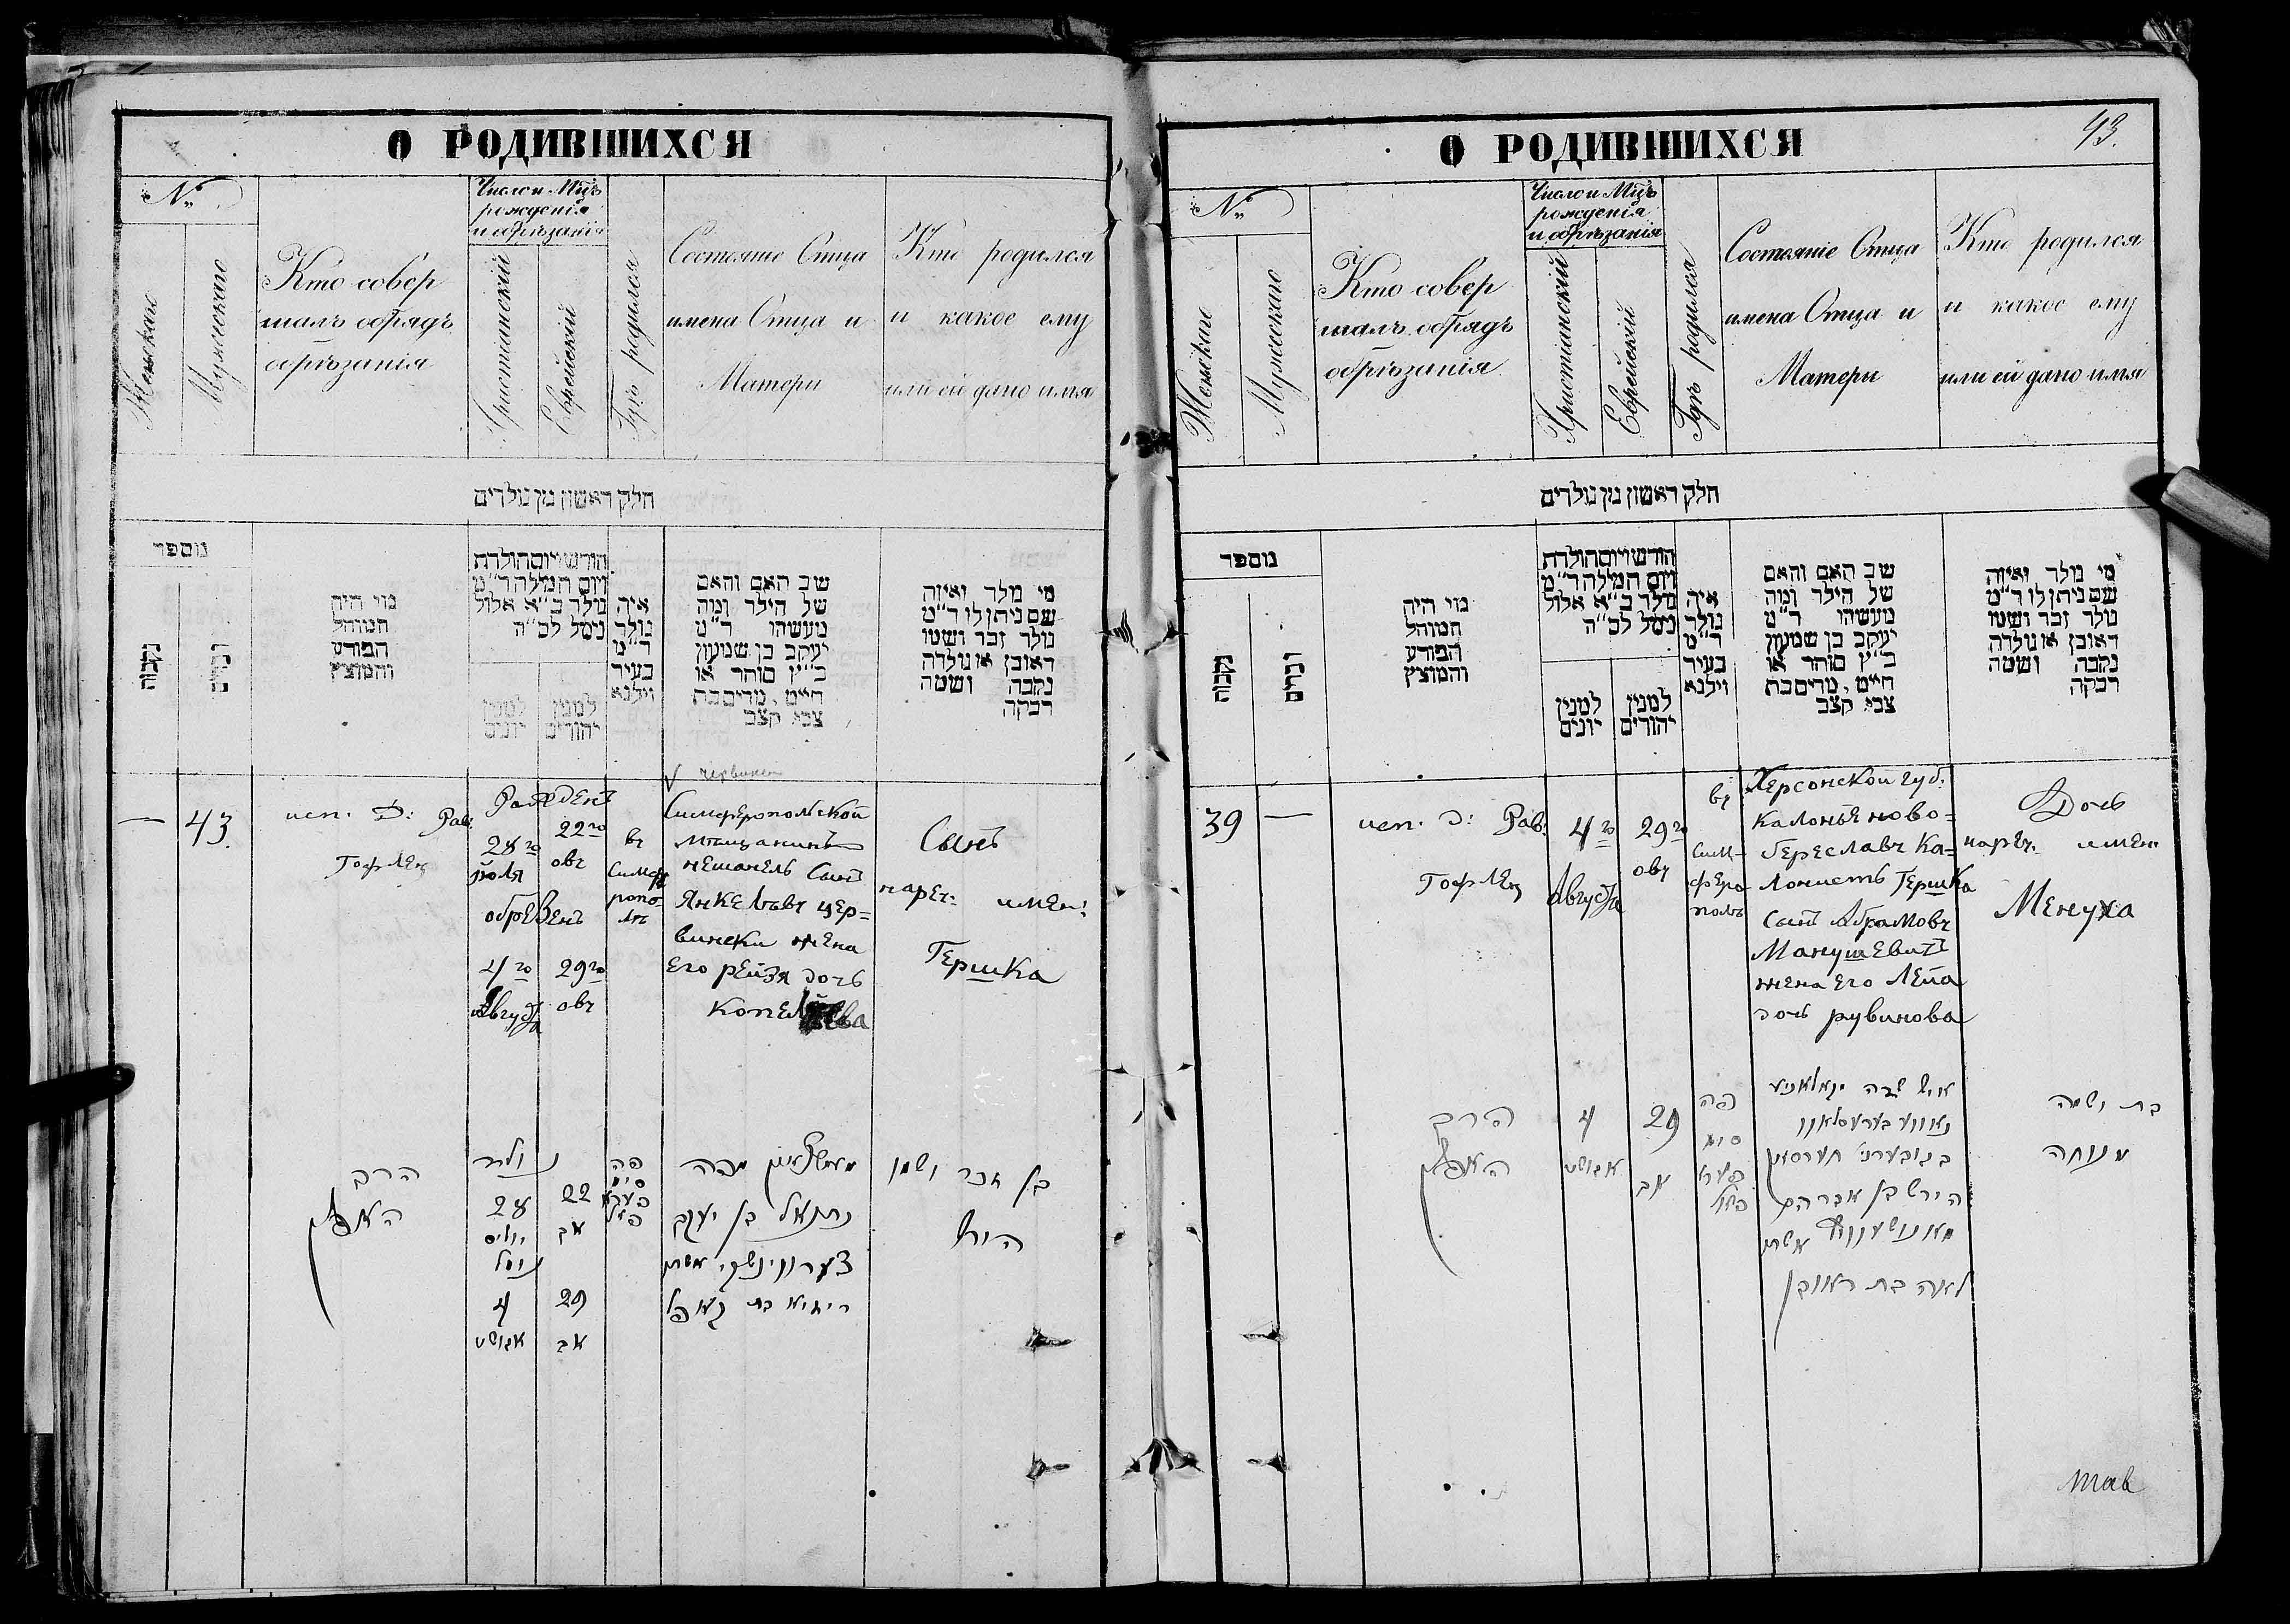 О РОДИВШИХСЯ
№
Женскаго
Мужескаго
Кто совер
шалъ обрядъ
обрѣзанія
Число и Мцъ
рожденія
и обрѣзанія
Христіанскій
Еврейскій
Гдѣ родился
Состояніе Отца
имена Отца и
Матери
Кто родился
и какое ему
или ей дано имя
חלק ראשון מן נולדים
מספר
נקבות
זכרים
מי היה
המוהל
הפורע
והמוצץ
חודש ויום הולדת
ויום המילה ד"מ
נולד כ"א אלול
נימל לכ"ה
למנין
יונים
למנין
יהודים
איה
נולד
ד"מ
בעיר
וילנא
שב האם והאם
של הילד ומה
מעשהו ד"מ
יעקב בן שמעון
כ"ץ סוחר או
חייט, מרים בת
צבי קצב
מי נולד ואיזה
שם ניתן לו ד"מ
נולד זכר ושמו
ראובן או נולדה
נקבה ושמה
רבקה
— 43.
исп. Д: Рав:
Гофлең
Рожденъ
28го
Іюля
22го
овъ
обрезенъ
4го
Августа
29го
овъ
въ
Симфе
ропо-
лѣ
Симферопольской
мѣщанинъ
нешанель Сынъ
Янкелѣвъ цер=
вински жена
его рейзя дочь
Сынъ
нареч: имен:
Гершка
הרב
נולד
28
יוליס
22
אב
נימל
4
אגוסט
29
אב
פה
סימ
פערא
פאל
נתנאל בן יעקב
צערווינסקי אשתו
בן זכר ושמו
הירש
О РОДИВШИХСЯ
43.
№
Женскаго
Мужескаго
Кто совер
шалъ обрядъ
обрѣзанія
Число и Мцъ
рожденія
и обрѣзанія
Христіанскій
Еврейскій
Гдѣ родился
Состояніе Отца
имена Отца и
Матери
Кто родился
и какое ему
или ей дано имя
חלק ראשון מן נולדים
מספר
נקבות
זכרים
מי היה
המוהל
הפורע
והמוצץ
חודש ויום הולדת
ויום המילה ד"מ
נולד כ"א אלול
נימל לכ"ה
למנין
יונים
למנין
יהודים
איה
נולד
ד"מ
בעיר
וילנא
שב האם והאם
של הילד ומה
מעשהו ד"מ
יעקב בן שמעון
כ"ץ סוחר או
חייט, מרים בת
צבי קצב
מי נולד ואיזה
שם ניתן לו ד"מ
נולד זכר ושמו
ראובן או נולדה
נקבה ושמה
רבקה
39 —
исп. Д: Рав:
Гофлең
4го
Августа
29го
овъ
въ
Сим-
феро-
полѣ
Херсонской губ.
калоньѣ ново=
береславъ ка=
лонистъ Гершка
Сынъ Абрамовъ
Манушевитъ
жена его Леіа
дочь рувинова
Дочь
нареч: имен:
Менуха
הרב
4
אגוסט
29
אב
פה
סימ
פערא
פאל
הירש בן אברהם
לאה בת ראובן
בת ושמה
מנוחה